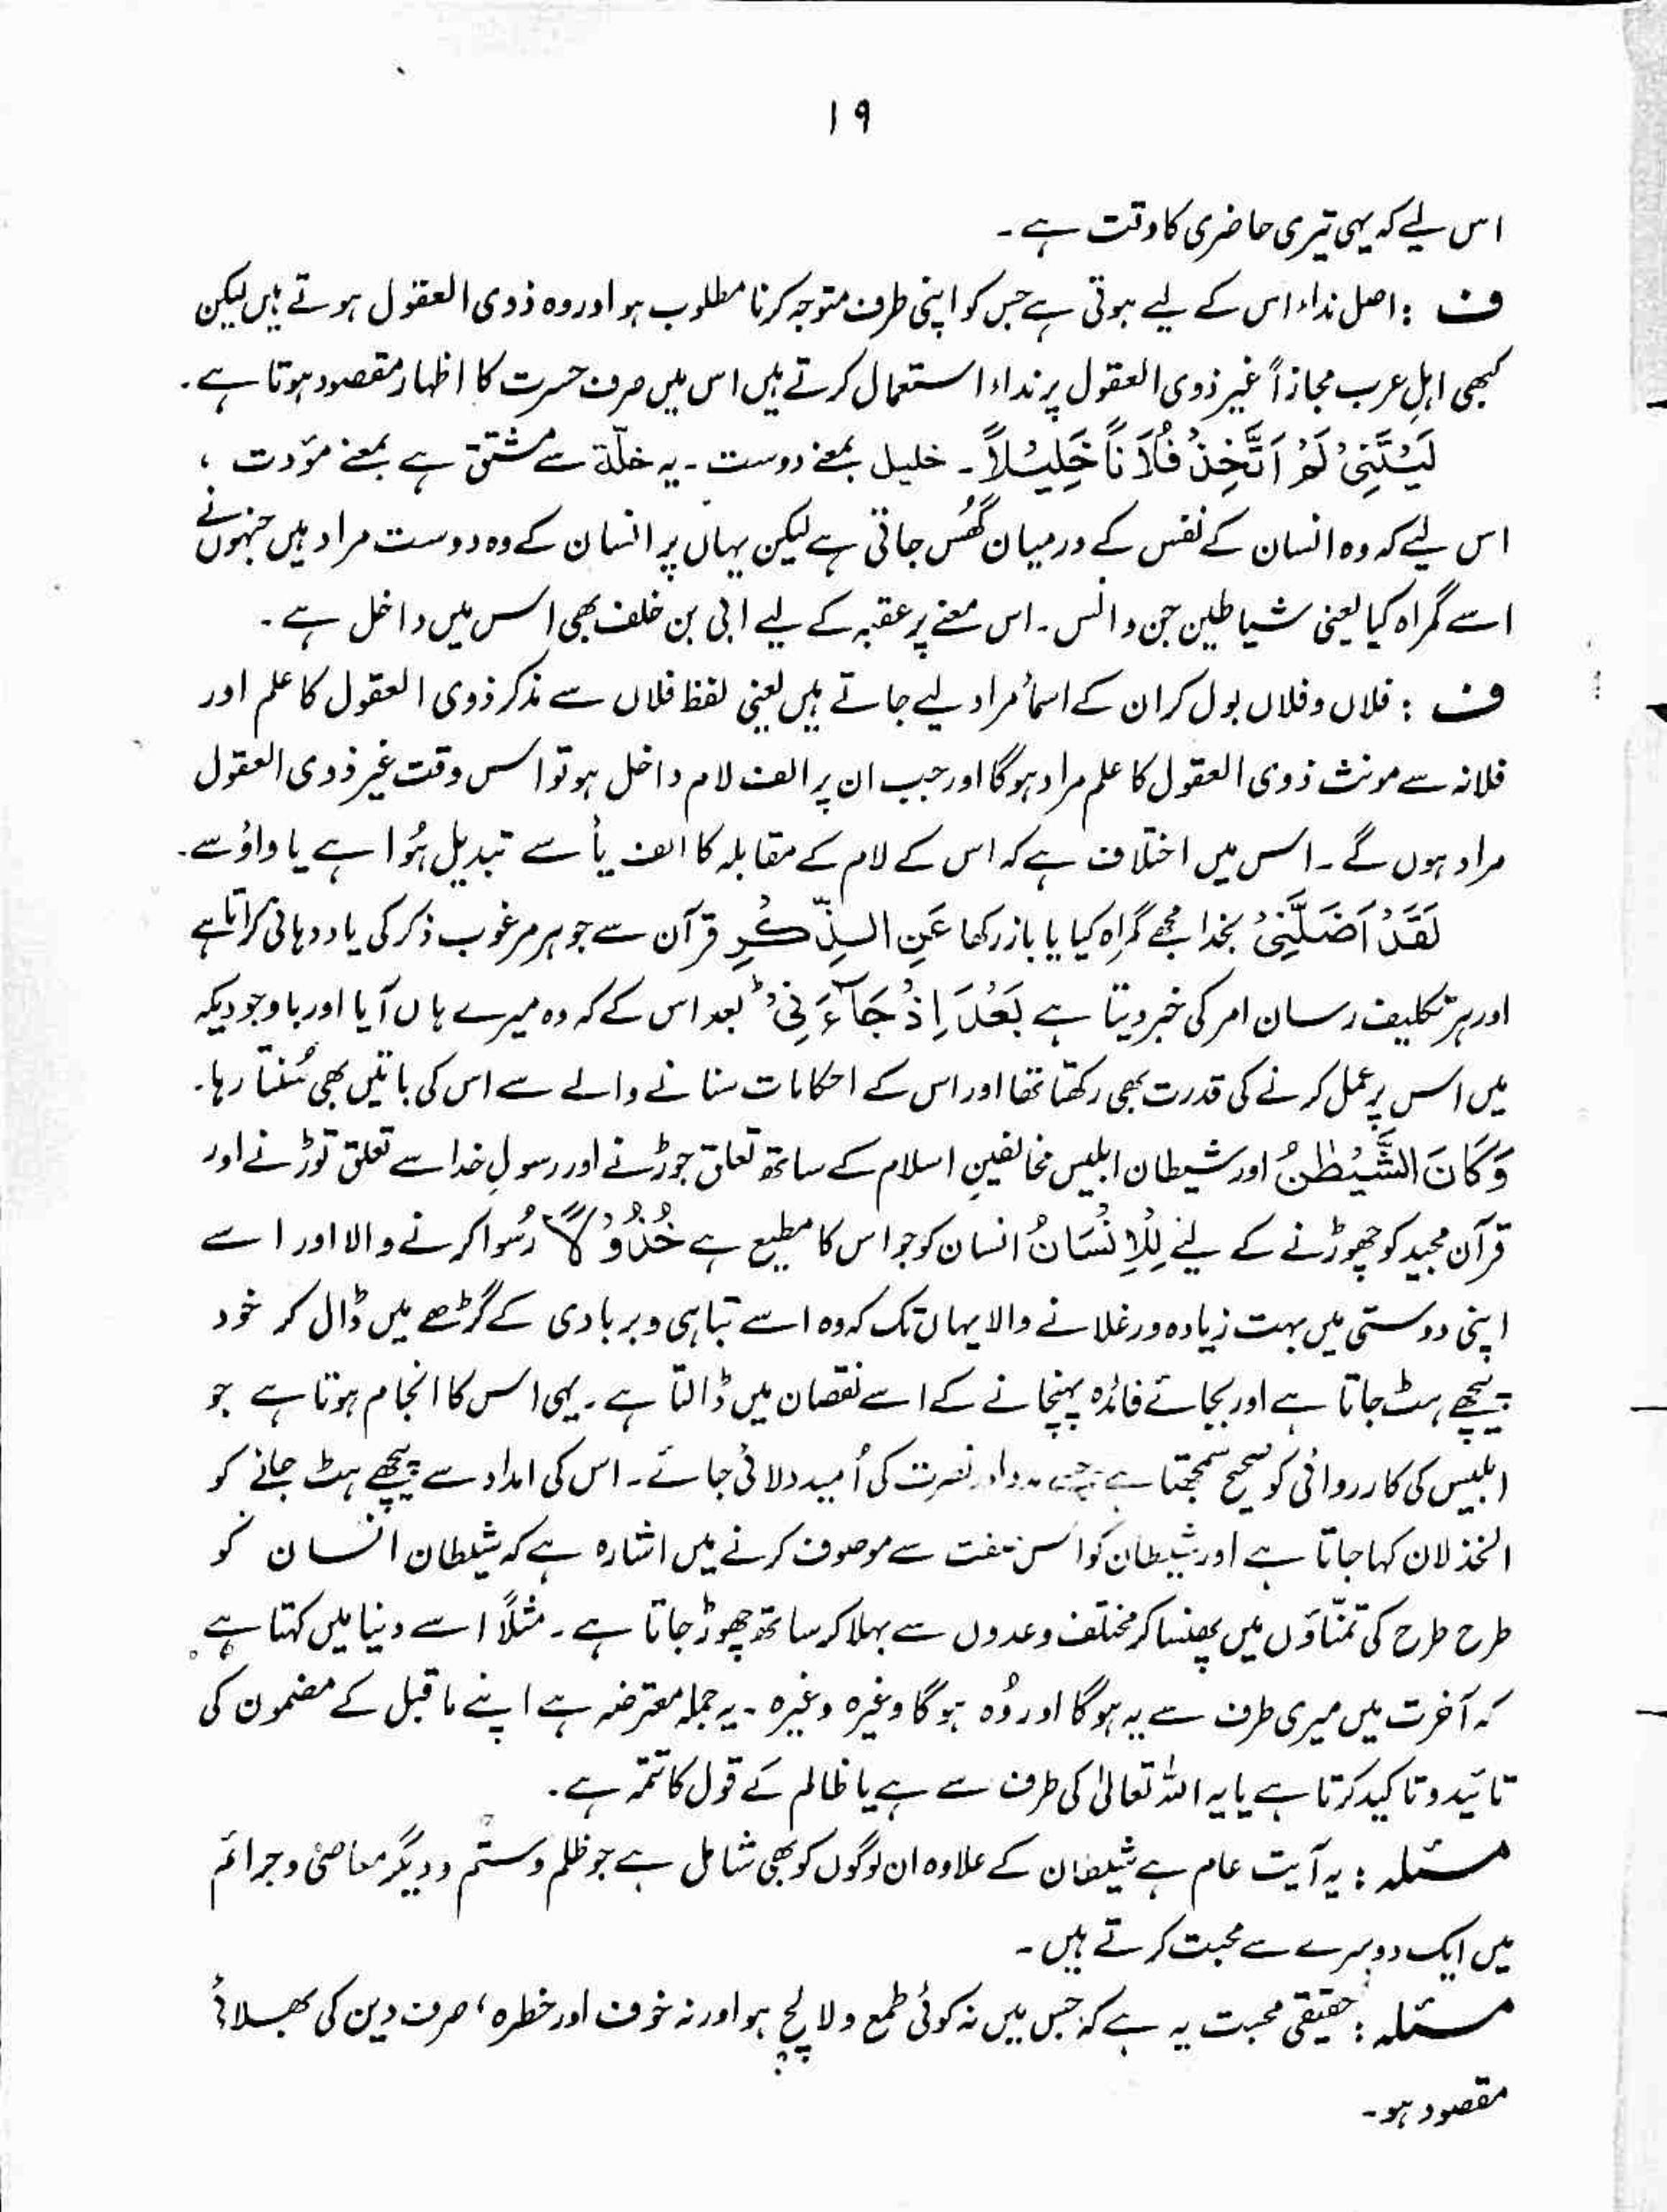 ۱۹
اس لیے کہ یہی تیری حاضری کا وقت ہے۔
ف : اصل نداء اس کے لیے ہوتی ہے جس کو اپنی طرف متوجہ کرنا مطلوب ہو اور وہ ذوی العقول ہوتے ہیں لیکن
کبھی اہلِ عرب مجازاً غیر ذوی العقول پر نداء استعمال کرتے ہیں اس میں صرف حسرت کا اظہار مقصود ہوتا ہے۔
لَیْتَنِیْ لَمْ اَتَّخِذْ فُلَانًا خَلِیْلاً۔ خلیل بمعنے دوست۔ یہ خلّة سے مشتق ہے بمعنے مؤدت ،
اس لیے کہ وہ انسان کے نفس کے درمیان گھُس جاتی ہے لیکن یہاں پر انسان کے وہ دوست مراد ہیں جنہوں نے
اسے گمراہ کیا یعنی شیاطین جن و انس۔ اس معنے پر عقبہ کے لیے ابی بن خلف بھی اس میں داخل ہے۔
ف : فلاں و فلاں بول کر ان کے اسمأ مراد لیے جاتے ہیں یعنی لفظ فلاں سے مذکر ذوی العقول کا علم اور
فلانہ سے مونث ذوی العقول کا علم مراد ہو گا اور جب ان پر الف لام داخل ہو تو اس وقت غیر ذوی العقول
مراد ہوں گے۔ اس میں اختلاف ہے کہ اس کے لام کے مقابلہ کا الف یأ سے تبدیل ہُوا ہے یا واؤ سے۔
لَقَدْ اَضَلَّنِیْ بخدا مجھے گمراہ کیا یا باز رکھا عَنِ الذِّکْرِ قرآن سے جو ہر مرغوب ذکر کی یاد دہانی کراتا ہے
اور ہر تکلیف رسان امر کی خبر دیتا ہے بَعْدَ اِذْ جَآءَنِیْ ط بعد اس کے کہ وہ میرے ہاں آیا اور باوجودیکہ
میں اس پر عمل کرنے کی قدرت بھی رکھتا تھا اور اس کے احکامات سنانے والے سے اس کی باتیں بھی سُنتا رہا۔
وَکَانَ الشَّیْطٰنُ اور شیطان ابلیس مخالفینِ اسلام کے ساتھ تعلق جوڑنے اور رسولِ خدا سے تعلق توڑنے اور
قرآن مجید کو چھوڑنے کے لیے لِلْاِنْسَانُ انسان کو جو اس کا مطیع ہے خُذُوْلاً رُسوا کرنے والا اور اسے
اپنی دوستی میں بہت زیادہ ورغلانے والا یہاں تک کہ وہ اسے تباہی و بربادی کے گڑھے میں ڈال کر خود
پیچھے ہٹ جاتا ہے اور بجائے فائدہ پہنچانے کے اسے نقصان میں ڈالتا ہے۔ یہی اس کا انجام ہوتا ہے جو
ابلیس کی کارروائی کو صحیح سمجھتا ہے جسے مدد اور نصرت کی اُمید دلائی جائے۔ اس کی امداد سے پیچھے ہٹ جانے کو
الخذلان کہا جاتا ہے اور شیطان کو اس صفت سے موصوف کرنے میں اشارہ ہے کہ شیطان انسان کو
طرح طرح کی تمنّاؤں میں پھنسا کر مختلف وعدوں سے بہلا کر ساتھ چھوڑ جاتا ہے۔ مثلاً اسے دنیا میں کہتا ہے
کہ آخرت میں میری طرف سے یہ ہو گا اور وُہ ہو گا وغیرہ وغیرہ۔ یہ جملہ معترضہ ہے اپنے ماقبل کے مضمون کی
تائید و تاکید کرتا ہے یا یہ اللہ تعالیٰ کی طرف سے ہے یا ظالم کے قول کا تتمہ ہے۔
مسئلہ : یہ آیت عام ہے شیطان کے علاوہ ان لوگوں کو بھی شامل ہے جو ظلم و ستم و دیگر معاصی و جرائم
میں ایک دوسرے سے محبت کرتے ہیں۔
مسئلہ : حقیقی محبت یہ ہے کہ جس میں نہ کوئی طمع و لالچ ہو اور نہ خوف اور خطرہ ، صرف دین کی بھلائی
مقصود ہو۔